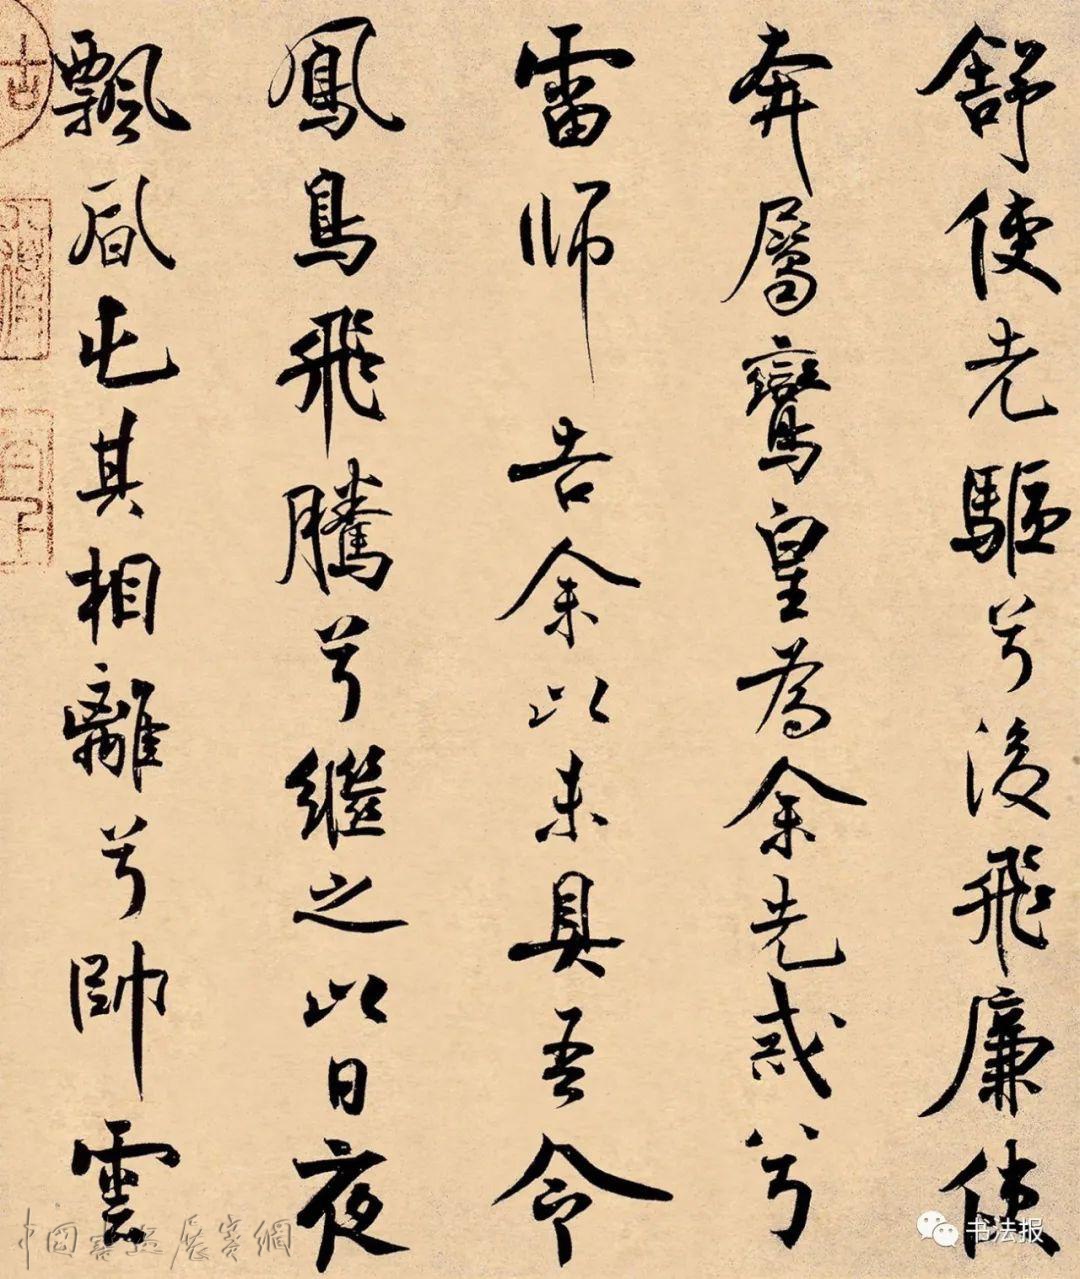 舒使先驅兮後飛廉使
奔屬鸞皇為余先戒兮
雷師告余以未具吾令
鳳鳥飛騰兮繼之以日夜
飄風屯其相離兮帥雲
中國書法展賽網
书法报